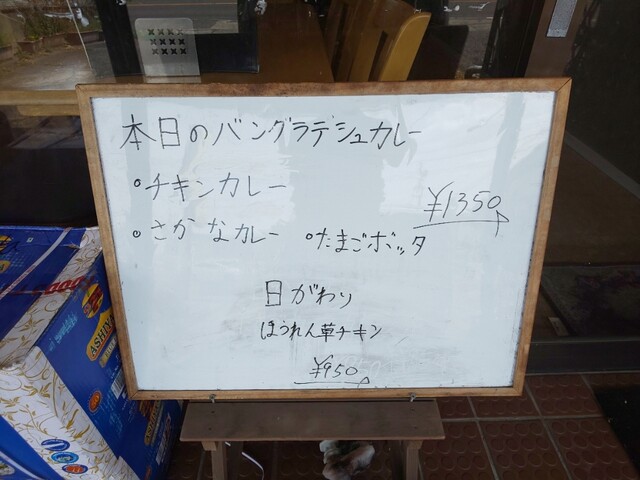 本日のバングラデシュカレー
°チキンカレー
¥1350
°さかなカレー °たまごボッタ
日がわり
ほうれん草チキン
¥950